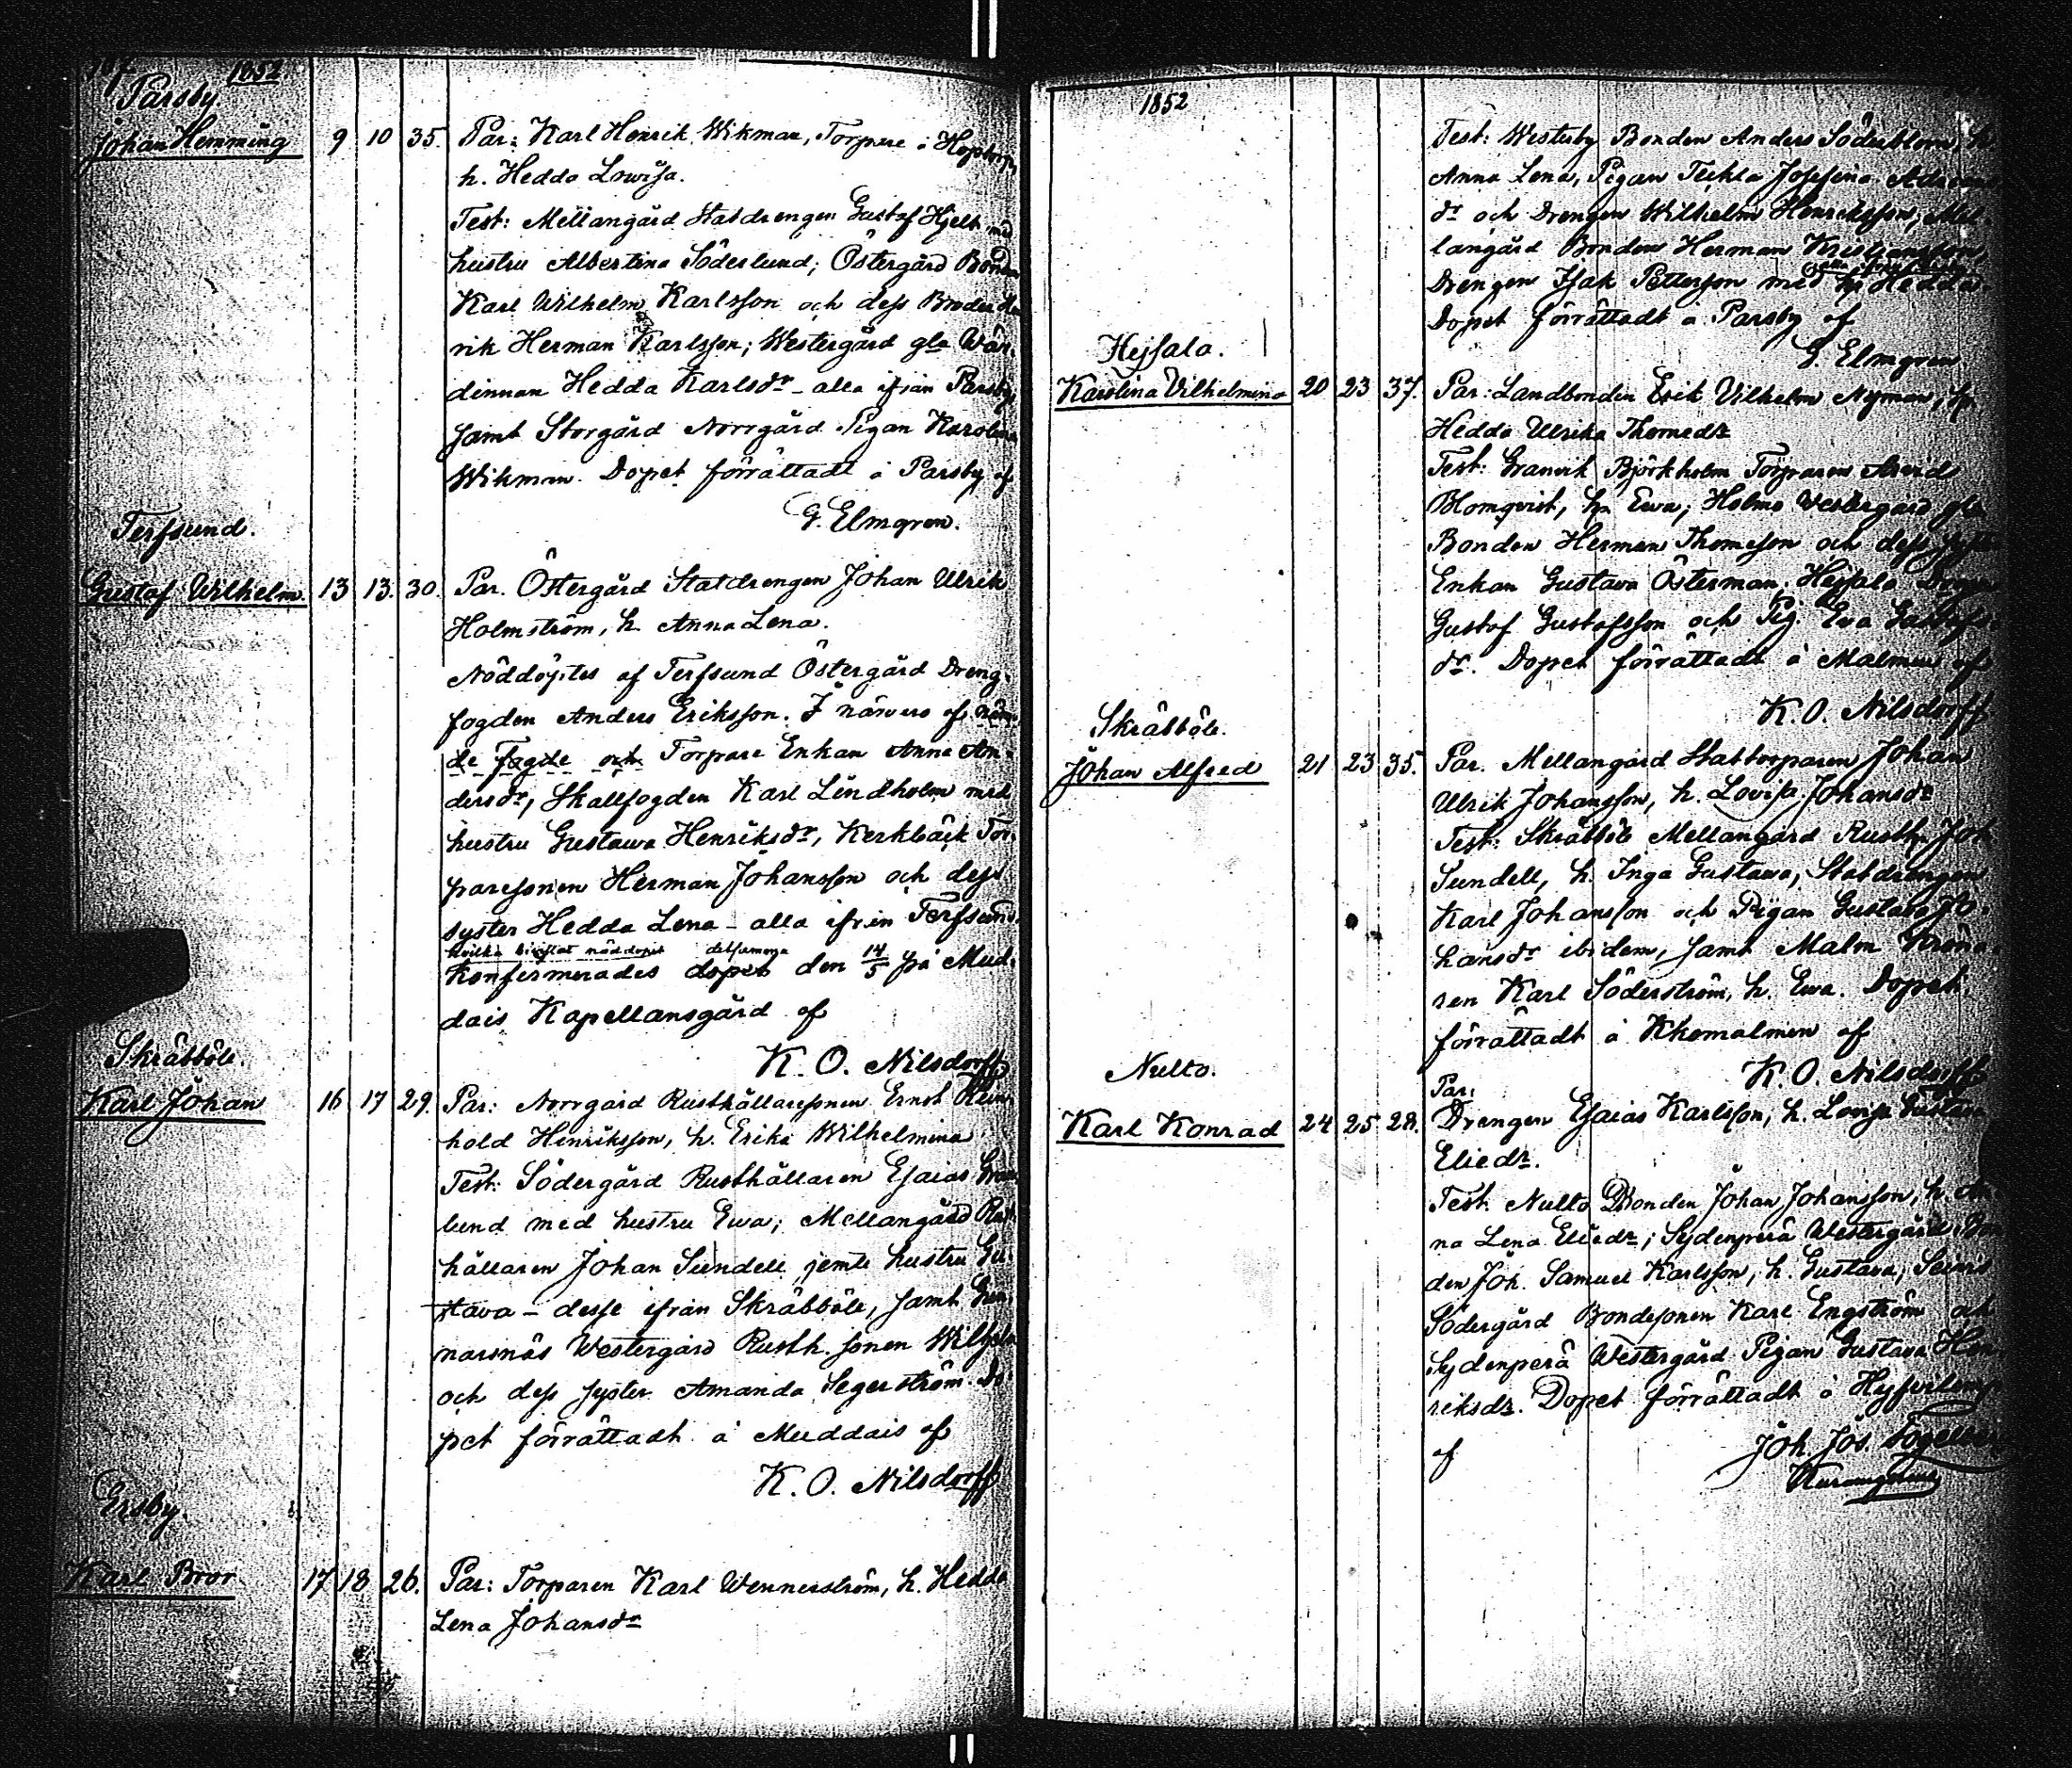 1852
Parsby
Johan Hemming 9 10 35. Par: Karl Henrik Wikman, Torpare i
h. Hedda Lowisa.
Test: Mellangård Statdrengen Gustaf Hjelt med
hustru Albertina Söderlund; Östergård Bonden
Karl Wilhelm Karlsson och dess Broder Hen
rik Herman Karlsson; Westergård gla Wär-
dinnan Hedda Karlsdr – alla ifrån Parsby,
samt Storgård Norrgård Pigan Karolina
Wikman. Dopet förrättadt å Parsby af
G. Elmgren.
Terfsund.
Gustaf Wilhelm. 13 13. 30. Par. Östergård Statdrengen Johan Ulrik
Holmström, h. Anna Lena.
Nöddöptes af Terfsund Östergård Dreng-
fogden Anders Eriksson. I närvaro af näm-
de Fogde och Torpare Enkan Anna An-
dersdr, Skallfogden Karl Lindholm med
hustru Gustawa Henriksdr, Kerkbäck Tor-
paresonen Herman Johansson och dess
syster Hedda Lena – alla ifrån Terfsund.
hvilka bivistat nöddopet
Konfirmerades dopet den 14/5 på Mud-
dais Kapellansgård af
K. O. Nilsdorff
Skräbböle.
Karl Johan 16 17 29. Par: Norrgård Rusthållaresonen Ernst Rein
hold Henriksson, h. Erika Wilhelmina
Test: Södergård Rusthållaren Esaias Gran
lund med hustru Ewa; Mellangård Rust
hållaren Johan Sundell jemte hustru Gu-
stava – desse ifrån Skräbböle, samt Gun
narsnäs Westergård Rusth. sonen Wilhelm
och dess syster Amanda Segerström. Do-
pet förrättadt å Muddais af
K. O. Nilsdorff
Ersby.
Karl Bror 17 18 26. Par: Torparen Karl Wennerström, h. Hedda
Lena Johansdr
1852
Test: Westerby Bonden Anders Söderblom, h.
Anna Lena, Pigan Teckla Josefina
dr och Drengen Wilhelm Henriksson, Mel
langård Bonden Herman
Drengen Isak Pettersson med h. Hedda
Dopet förrättadt å Parsby af
G. Elmgren
Hejsala.
Karolina Vilhelmina 20 23 37. Par: Landbonden Erik Vilhelm Nyman, h.
Hedda Ulrika Thomedr
Test: Granvik Björkholm Torparen Arvid
Blomqvist, h. Ewa; Holmo Westergård gla
Bonden Herman Thomesson och dess syster
Enkan Gustava Österman; Hejsala Drengen
Gustaf Gustafsson och Pig. Ewa Gustafs
dr. Dopet förrättadt å Malmen af
K. O. Nilsdorff
Skräbböle.
Johan Alfred 21 23 35. Par. Mellangård Stattorparen Johan
Ulrik Johansson, h. Lovisa Johansdr
Test: Skräbböle Mellangård Rusth. Joh
Sundell, h. Inga Gustawa, Statdrengen
Karl Johansson och Pigan Gustava Jo-
hansdr ibidem, samt Malm
ren Karl Söderström, h. Ewa. Dopet
förrättadt å Kkomalmen af
K. O. Nilsdorff
Nulto.
Par:
Karl Konrad 24 25 28. Drengen Esaias Karlsson, h. Lovisa Gustava
Eliedr.
Test. Nulto Bonden Johan Johansson, h. An
na Lena Eliedr; Sydenperä Westergård Bon
den Joh. Samuel Karlsson, h. Gustava;
Södergård Bondesonen Karl Engström och
Sydenperä Westergård Pigan Gustava Hen
riksdr. Dopet förrättadt å
af Joh. Jos.